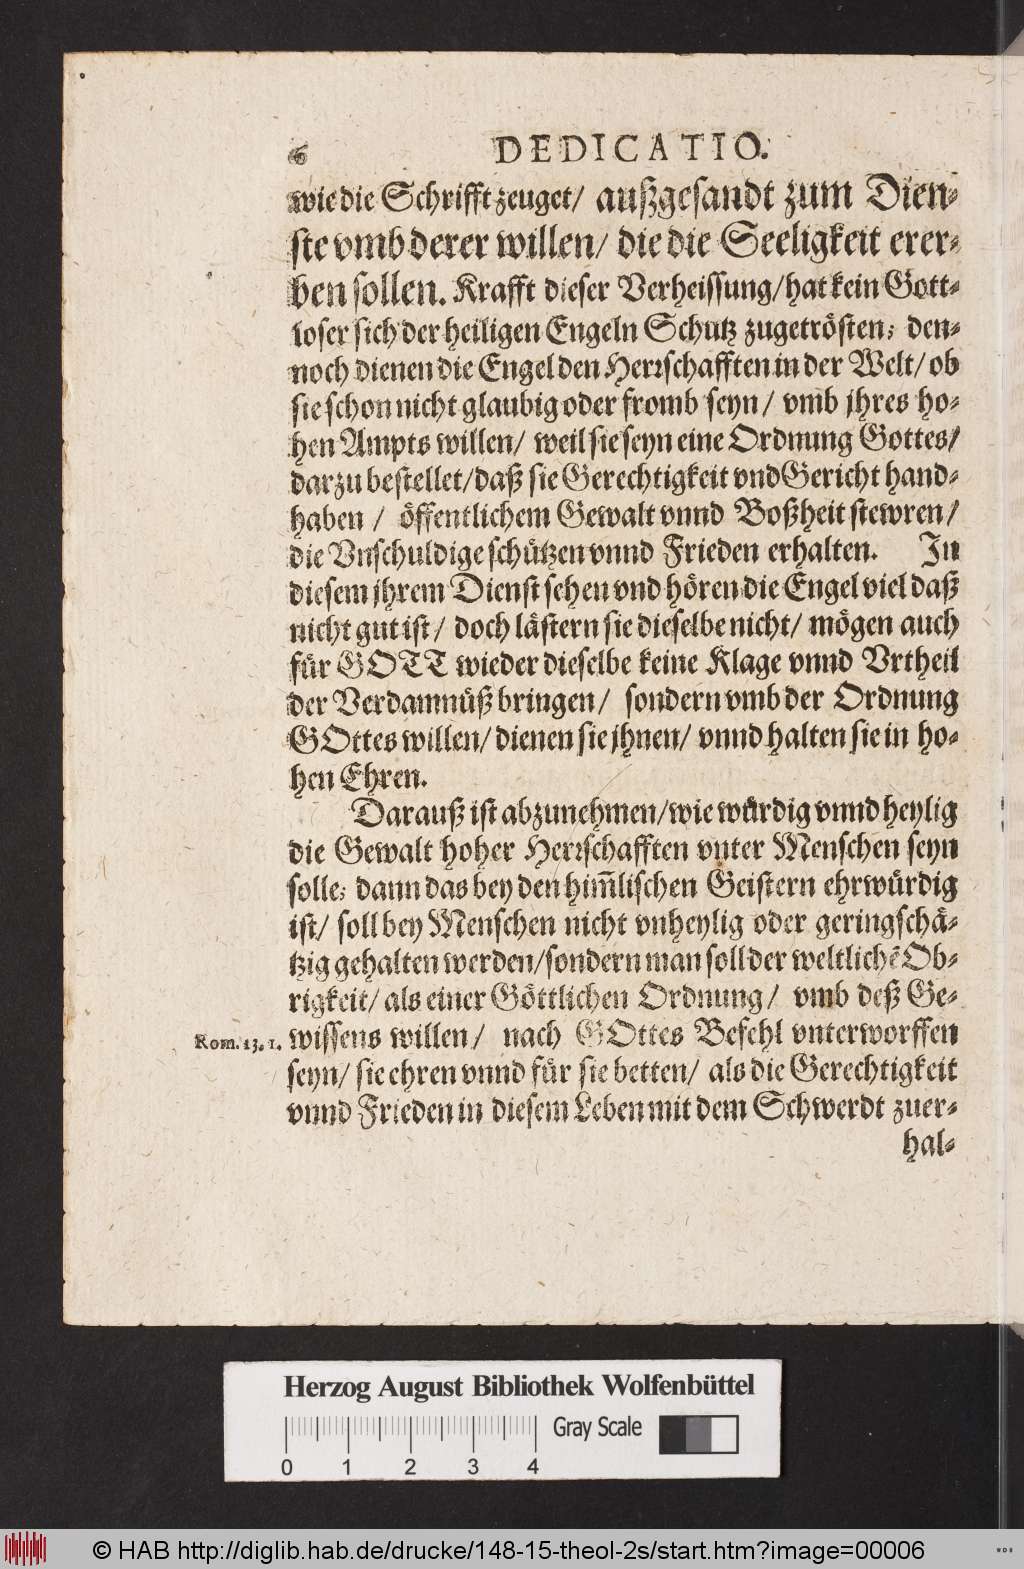 6 DEDICATIO.
wie die Schrifft zeuget/ außgesandt zum Dien-
ste vmb derer willen/ die die Seeligkeit erer-
ben sollen. Krafft dieser Verheissung/ hat kein Gott-
loser sich der heiligen Engeln Schutz zugetrösten; den-
noch dienen die Engel den Herrschafften in der Welt/ ob
sie schon nicht glaubig oder fromb seyn/ vmb jhres ho-
hen Ampts willen/ weil sie seyn eine Ordnung Gottes/
darzu bestellet/ daß sie Gerechtigkeit vnd Gericht hand-
haben / öffentlichem Gewalt vnnd Boßheit stewren/
die Vnschuldige schützen vnnd Frieden erhalten. In
diesem jhrem Dienst sehen vnd hören die Engel viel daß
nicht gut ist/ doch lästern sie dieselbe nicht/ mögen auch
für GOTT wieder dieselbe keine Klage vnnd Vrtheil
der Verdamnüß bringen/ sondern vmb der Ordnung
GOttes willen/ dienen sie jhnen/ vnnd halten sie in ho-
hen Ehren.
Darauß ist abzunehmen/ wie würdig vnnd heylig
die Gewalt hoher Herrschafften vnter Menschen seyn
solle; dann das bey den him̃lischen Geistern ehrwürdig
ist/ soll bey Menschen nicht vnheylig oder geringschä-
tzig gehalten werden/ sondern man soll der weltlichẽ Ob-
rigkeit/ als einer Göttlichen Ordnung/ vmb deß Ge-
Rom. 13. 1. wissens willen/ nach GOttes Befehl vnterworffen
seyn/ sie ehren vnnd für sie betten/ als die Gerechtigkeit
vnnd Frieden in diesem Leben mit dem Schwerdt zuer-
hal-
Herzog August Bibliothek Wolfenbüttel
0 1 2 3 4 Gray Scale
© HAB http://diglib.hab.de/drucke/148-15-theol-2s/start.htm?image=00006